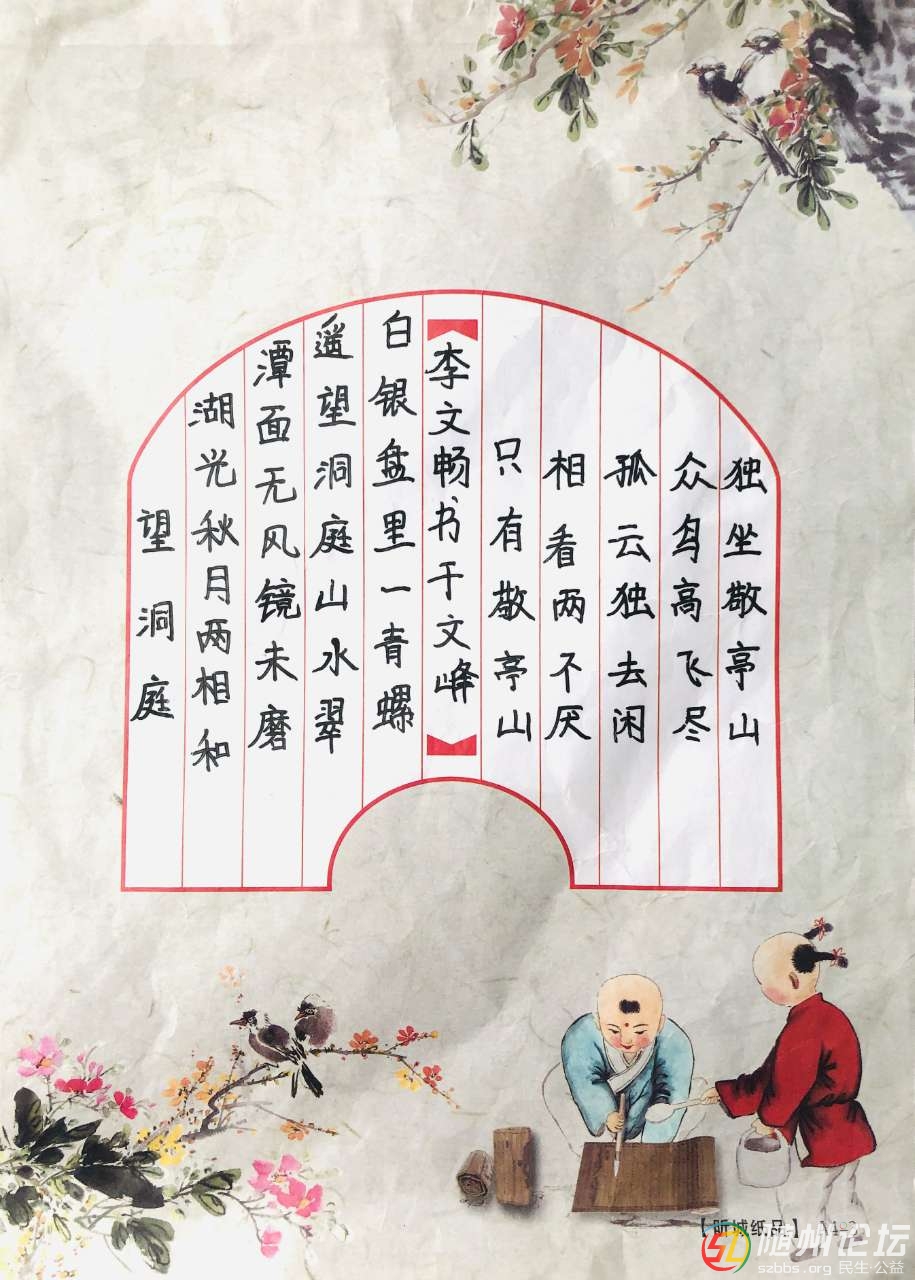 独坐敬亭山
众鸟高飞尽
孤云独去闲
相看两不厌
只有敬亭山
望洞庭
湖光秋月两相和
潭面无风镜未磨
遥望洞庭山水翠
白银盘里一青螺
李文畅书于文峰
【昕诚纸品】
随州论坛
szbbs.org 民生·公益